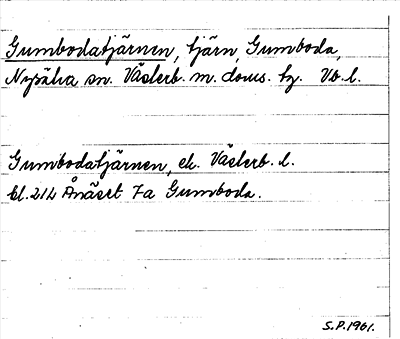 Gumbodatjärnen, tjärn, Gumboda,
Nysätra sn. Västerb. m. doms. tg. Vb. l.
Gumbodatjärnen, ek. Västerb. l.
bl. 21L Ånäset 7a Gumboda.
S.P. 1961.